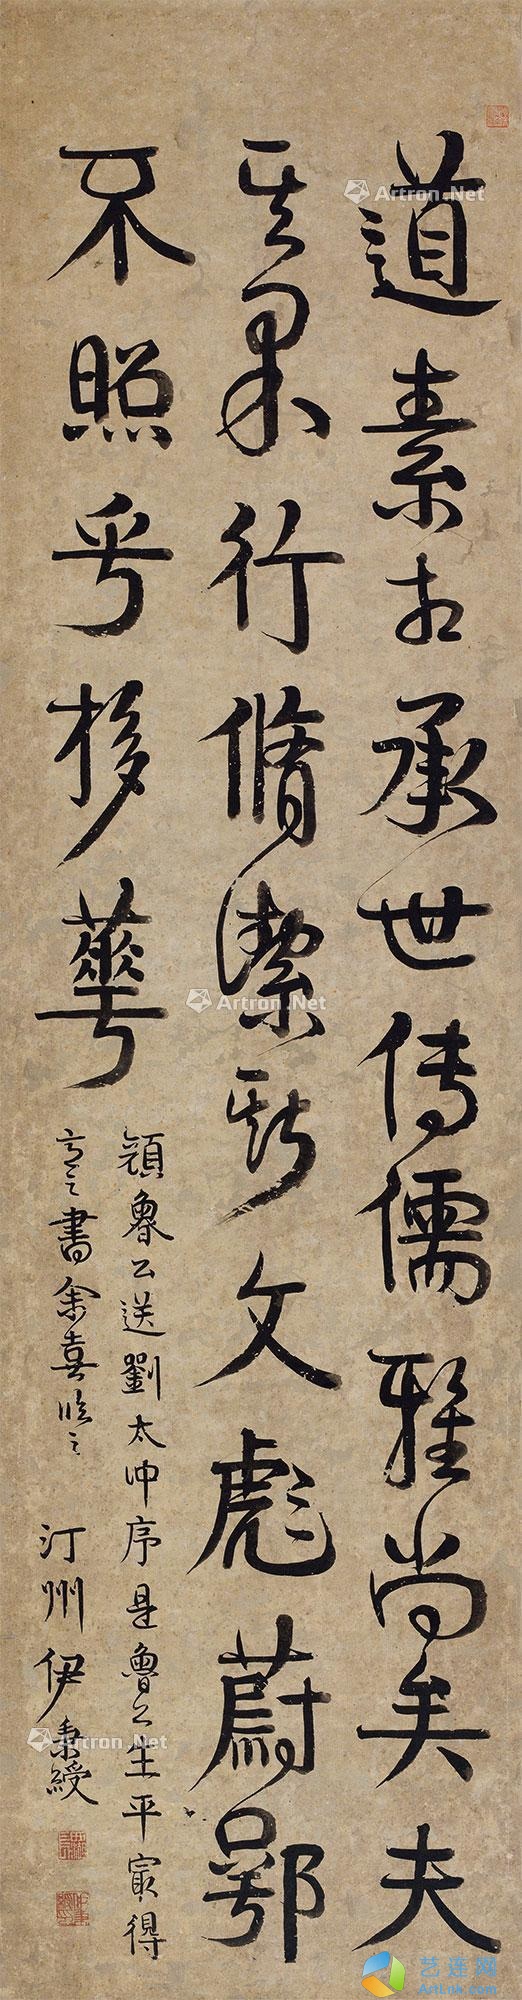 道素相承世傳儒雅尚矣夫
其果行脩潔斯文彪蔚鄂
不照乎栘華
顏魯公送劉太冲序是魯公生平最得
意之書余喜臨之 汀州伊秉綬
Artron.Net
Artron.Net
Artron.Net
Artron.Net
艺连网
ArtLnk.com